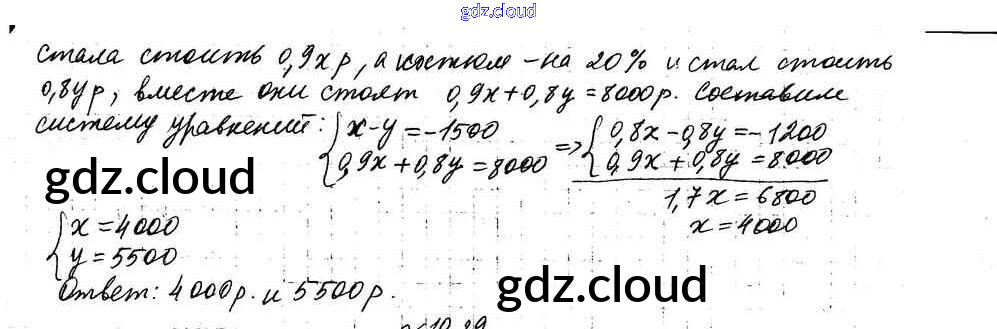 gdz.cloud
стала стоить 0,9x р, а костюм – на 20% и стал стоить
0,8y р, вместе они стоят 0,9x+0,8y=8000р. Составим
систему уравнений: { x-y=-1500 => { 0,8x-0,8y=-1200
0,9x+0,8y=8000 0,9x+0,8y=8000
gdz.cloud
1,7x=6800
{ x=4000 x=4000
y=5500
Ответ: 4000р. и 5500р.
gdz.cloud